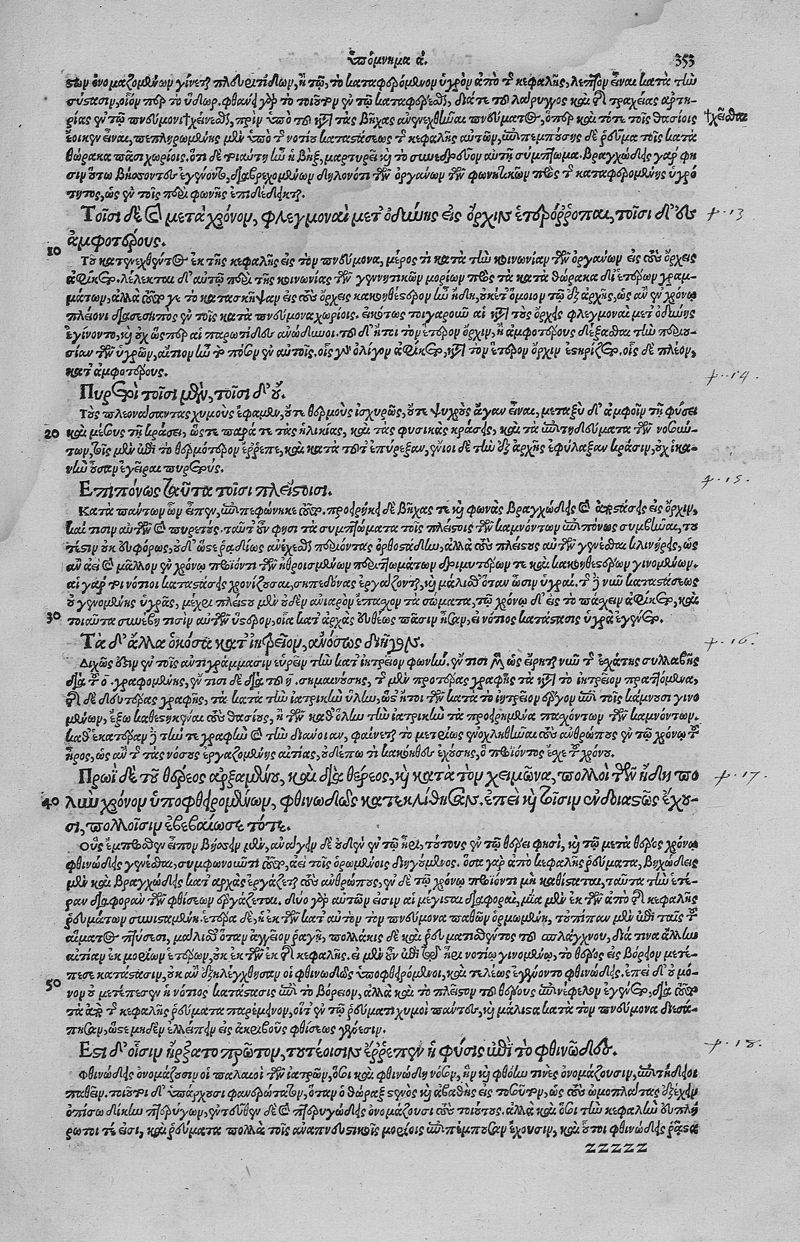 Ὑπόμνημα ά. 353
στων ὀνομαζομένων γίνεται πλευριτίδων, ἢ τῷ, τὸ καταφερόμενον ὑγρὸν ἀπὸ τ κεφαλῆς, λεπτὸν εἶναι κατὰ τὴν
σύστασιν, οἷόν περ τὸ ὕδωρ. φθάνει γὰρ τὸ τοιοῦτον ἐν τῷ καταφέρεσθαι, διά τε τοῦ λάρυγγος καὶ τ τραχείας ἀρτη-
ρίας ἐν τῷ πνεύμονι χεῖσθαι, πρὶν ὑπὸ τοῦ κατὰ τὰς βῆχας ἀνενεχθῆναι πνεύματος, ὅπερ καὶ τότε τοῖς θασίοις
χεῖσθαι
ἔοικεν εἶναι, πεπληρωμένης μὲν ὑπὸ τ νοτίου καταστάσεως τ κεφαλῆς αὐτῶν, ἐπιπεμπούσης δὲ ῥεῦμα τοῖς κατὰ
θώρακα πᾶσι χωρίοις. ὅτι δὲ τοιαύτη ἦν ἡ βὴξ, μαρτυρεῖ καὶ τὸ συνεδρεῦον αὐτῇ σύμπτωμα. βραγχώδεις γάρ φη
σιν οὕτω βήσσοντες ἐγένοντο, διαβρεχομένων δηλονότι τῶν ὀργάνων τῶν φωνητικῶν πρὸς τ καταφερομένης ὑγρό
τητος, ὡς ἐν τοῖς περὶ φωνῆς ἐπιδέδεικται.
Τοῖσι δὲ καὶ μετὰ χρόνον, φλεγμοναὶ μετ' ὀδύνης εἰς ὄρχιν ἑτερόρροποι, τοῖσι δ' ἐς
+. 13
ἀμφοτέρους.
10
Τὸ κατενεχθὲν ἐκ τῆς κεφαλῆς εἰς τὸν πνεύμονα, μέρος τι κατὰ τὴν κοινωνίαν τῶν ὀργάνων εἰς τοὺς ὄρχεις
ἀφίκετο. λέλεκται δ' αὐτῷ περὶ τῆς κοινωνίας τῶν γεννητικῶν μορίων πρὸς τὰ κατὰ θώρακα δι' ἑτέρων γραμ-
μάτων, ἀλλὰ τοῦτό γε τὸ κατασκῆψαν εἰς τοὺς ὄρχεις κακοηθέστερον ἦν ἤδη, οὐκέτ' ὅμοιον τῷ ἐξ ἀρχῆς, ὡς ἂν ἐν χρόνῳ
πλείονι διασεσηπὸς ἐν τοῖς κατὰ πνεύμονα χωρίοις. εἰκότως τοιγαροῦν αἱ κατὰ τοὺς ὄρχεις φλεγμοναὶ μετ' ὀδύνης
ἐγίνοντο, καὶ οὐχ ὥσπερ αἱ παρωτίδες ἀνώδυνοι. τοῦ δ' ἤτοι τὸν ἕτερον ὄρχιν, ἢ ἀμφοτέρους δέξασθαι τὴν περιου-
σίαν τῶν ὑγρῶν, αἴτιον ἦν τ ποσὸν ἐν αὐτοῖς, οἷς μὲν ὀλίγον ἀφίκετο, κατὰ τὸν ἕτερον ὄρχιν ἐστήριξεν. οἷς δὲ πλέον,
κατ' ἀμφοτέρους.
+. 14.
Πυρετοὶ τοῖσι μὲν, τοῖσι δ' οὔ.
Τοὺς πλεονάσαντας χυμοὺς ἔφαμεν, οὔτε θερμοὺς ἰσχυρῶς, οὔτε ψυχροὺς ἄγαν εἶναι, μεταξὺ δ' ἀμφοῖν τῇ φύσει
20 καὶ μέσους τῇ κράσει, ὥστε παρά τε τὰς ἡλικίας, καὶ τὰς φυσικὰς κράσεις, καὶ τὰ ἐπιτηδεύματα τῶν νοσούν-
των, τοῖς μὲν ἐπὶ τὸ θερμότερον ἔρρεπε, καὶ κατὰ τοῦτ' ἐπύρεξαν, ἔνιοι δὲ τὴν ἐξ ἀρχῆς ἐφύλαξαν κρᾶσιν, οὐχ ἱκα-
νὴν οὖσαν ἐγεῖραι πυρετούς.
Ἐπιπόνως ταῦτα τοῖσι πλείστοισι.
+. 15.
Κατὰ πάντων ὧν εἶπεν, ἐπιπεφώνηκε τοῦτο. προείρηκε δὲ βῆχας τε καὶ φωνὰς βραγχώδεις καὶ ἀποστάσεις εἰς ὄρχιν,
καί τισιν αὐτῶν καὶ πυρετός. ταῦτ' οὖν φησι τὰ συμπτώματα τοῖς πλείστοις τῶν καμνόντων ἐπιπόνως συμβῆναι, του
τέστιν οὐκ εὐφόρως, οὐδ' ὥστε ῥᾳδίως ἀνέχεσθαι περιιόντας ὀρθοστάδην, ἀλλὰ τοὺς πλείστους αὐτῶν γενέσθαι κλινήρεις, ὡς
ἂν ἀεὶ μᾶλλον ἐν χρόνῳ προϊόντι τῶν ἠθροισμένων περιττωμάτων δριμυτέρων τε καὶ κακοηθεστέρων γινομένων.
αἱ γάρ τοι νότιοι καταστάσεις χρονίζουσαι, σηπεδόνας ἐργάζονται, καὶ μάλισθ' ὅταν ὦσιν ὑγραί. τ δ' ἦν νῦν καταστάσεως
οὐ γενομένης ὑγρᾶς, μέχρι πλείστου μὲν οὐδὲν ἀνιαρὸν ἔπασχον τὰ σώματα, τῷ χρόνῳ δ' εἰς τὸ πάσχειν ἀφίκετο, καὶ
30 τοιαῦτα συνέβη τισὶν αὐτῶν ὕστερον, οἷα κατ' ἀρχὰς εὐθέως πᾶσιν ἦσαν, εἰ νότιος κατάστασις ὑγρὰ ἐγένετο.
Τὰ δ' ἄλλα ὁκόσα κατ' ἰητρεῖον, ἀνόσως διῆγον.
+. 16.
Διχῶς ἔστιν ἐν τοῖς ἀντιγράμμασιν εὑρεῖν τὴν κατ' ἰητρεῖον φωνήν. ἔν τισι μὲν ὡς εἴρηται νῦν τ ἐσχάτης συλλαβῆς
διὰ τ ο γραφομένης, ἔν τισι δὲ διὰ τοῦ η σημαινούσης, τ μὲν προτέρας γραφῆς τὰ κατὰ τὸ ἰητρεῖον πραττόμενα,
τ δὲ δευτέρας γραφῆς, τὰ κατὰ τὴν ἰατρικὴν ὕλην, ὡς ἤτοι τῶν κατὰ τὸ ἰητρεῖον ἔργων ἐπὶ τοῖς κάμνουσι γινο
μένων, ἔξω καθεστηκέναι τοὺς θασίους, ἢ τῶν καθ' ὅλην τὴν ἰατρικὴν τὰ προειρημένα πασχόντων τῶν καμνόντων.
καθ' ἑκατέραν δ' οὖν τήν τε γραφὴν καὶ τὴν διάνοιαν, φαίνεται τὸ μετρίως ἐνοχληθῆναι τοὺς ἀνθρώπους ἐν τῷ χρόνῳ τ
ἦρος, ὡς ἂν τ τὰς νόσους ἐργαζομένης αἰτίας, οὐδέπω τι κακόηθες ἐχούσης, ὃ προϊόντος ἔσχε τ χρόνου.
Πρωῒ δὲ τοῦ θέρεος ἀρξαμένου, καὶ διὰ θέρεος, καὶ κατὰ τὸν χειμῶνα, πολλοὶ τῶν ἤδη πο
+. 17.
40 λὺν χρόνον ὑποφθειρομένων, φθινώδεες κατεκλίθησαν. ἐπεὶ καὶ τοῖσιν ἐνδοιαστῶς ἔχου-
σι, πολλοῖσιν ἐβεβαίωσε τότε.
Οὓς ἔμπροσθεν εἶπον βήσσειν μὲν, ἀναπτύειν δὲ οὐδὲν ἐν τῷ ἦρι, τούτους ἐν τῷ θέρει φησὶ, καὶ τῷ μετὰ θέρος χρόνῳ
φθινώδεας γενέσθαι, συμφωνοῦντι τοῦτο, ἀεὶ τοῖς ὁρωμένοις διηγούμενος. ὅσα γὰρ ἀπὸ κεφαλῆς ῥεύματα, βηχώδεις
μὲν καὶ βραγχώδεις κατ' ἀρχὰς ἐργάζεται τοὺς ἀνθρώπους, ἐν δὲ τῷ χρόνῳ προϊόντι μὴ καθίσταται, ταῦτα τὴν ἑτέ-
ραν διαφορὰν τῶν φθίσεων ἐργάζεται. δύο γὰρ αὐτῶν εἰσιν αἱ μέγισται διαφοραὶ, μία μὲν ἐκ τῶν ἀπὸ τ κεφαλῆς
ῥευμάτων συνισταμένη, ἑτέρα δὲ, ἡ ἐκ τῶν κατ' αὐτὸν τὸν πνεύμονα παθῶν ὁρμωμένη, τὸ πᾶν μὲν ἐπὶ ταῖς τ
αἵματος πτύσεσι, μάλισθ' ὅταν ἀγγεῖον ῥαγῇ, πολλάκις δὲ καὶ ῥευματισθέντος τοῦ σπλάγχνου, διά τινα ἄλλην
αἰτίαν ἐκ μορίων ἑτέρων, οὐκ ἐκ τῶν ἐκ τ κεφαλῆς. εἰ μὲν οὖν ἐπὶ τῷ ἦρι νοτίῳ γινομένῳ, τὸ θέρος εἰς βόρειον μετέ-
πεσε κατάστασιν, οὐκ ἂν ἐξηλέγχθησαν οἱ φθινώδεες ὑποφθειρόμενοι, καὶ τελέως ἐγένοντο φθινώδεις. ἐπεὶ δ' οὐ μό-
50 νον οὐ μετέπεσεν ἡ νότιος κατάστασις ἐπὶ τὸ βόρειον, ἀλλὰ καὶ τὸ πλεῖστον τοῦ θέρους ἐπινέφελον ἐγένετο, διὰ τοῦτο
τὰ ἀπὸ τ κεφαλῆς ῥεύματα παρέμεινον, οἵ τ' ἐν τῷ ῥεύματι χυμοὶ πάντες, καὶ μάλιστα κατὰ τὸν πνεύμονα διεσά-
πησαν, ὥστε μηδὲν ἐλλείπειν εἰς ἀκριβοῦς φθίσεως γένεσιν.
Ἔστι δ' οἷσιν ἤρξατο πρῶτον, τουτέοισιν ἔρρεπεν ἡ φύσις ἐπὶ τὸ φθινῶδες.
+. 18.
Φθινώδεις ὀνομάζουσιν οἱ παλαιοὶ τῶν ἰατρῶν, ὅσοι καὶ φθινώδη νόσον, ἣν καὶ φθόην τινὲς ὀνομάζουσιν, ἐπιτήδειοι
παθεῖν. τοιοῦτοι δ' ὑπάρχουσι φανερώτατον, ὅταν ὁ θώραξ στενὸς καὶ ἀβαθὴς εἰς τοσοῦτον, ὡς τοὺς ὠμοπλάτας ἐξέχειν
ὀπίσω δίκην πτερύγων, ἐντεῦθεν δὲ καὶ πτερυγώδεις ὀνομάζουσι τοὺς τοιούτους. ἀλλὰ καὶ ὅσοι τὴν κεφαλὴν εὐπλή
ρωτοί τέ εἰσι, καὶ ῥεύματα πολλὰ τοῖς ἀναπνευστικοῖς μορίοις ἐπιπέμπουσαν ἔχουσιν, καὶ οὗτοι φθινώδεις ῥᾷστα
ZZZZZ